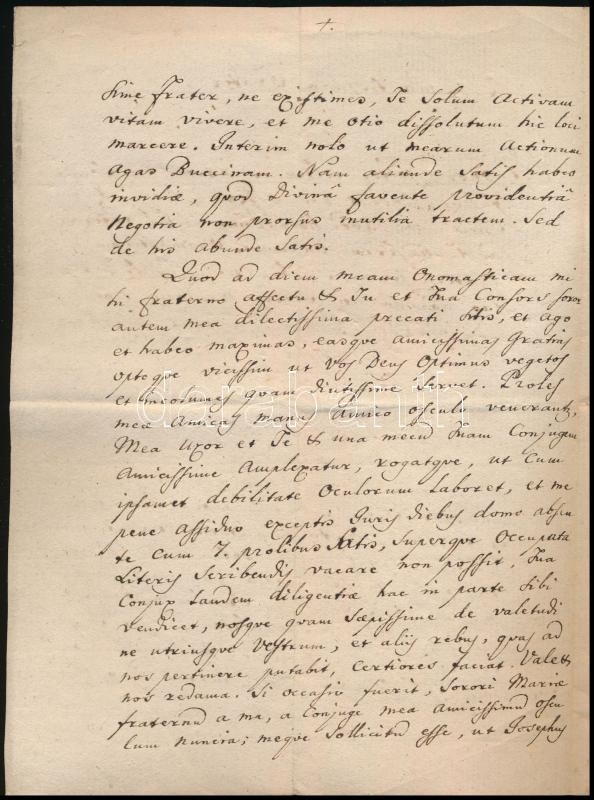 +.
sime Frater, ne existimes, Te solum Activam
vitam vivere, et me otio dissolutum hic loci
marcere. Interim nolo ut mearum Actionum
Agas Buccinam. Nam aliunde satis habeo
invidiæ, quod Divinâ favente providentiâ
Negotia non prorsus inutilia tractem. Sed
de his abunde satis.
Quod ad diem meam Onomasticam mi
hi fraterno affectu & Tu et Tua Consors soror
autem mea dilectissima precati sitis, et ago
et habeo maximas, easque amicissimas Gratias
opto que vicissim ut vos Deus Optimus vegetos
et incolumes quam diutissime servet. Proles
meæ Amicas manus Amico osculo venerantr,
Mea Uxor et Te & una mecu Tuam Conjugem
Amicissime Amplexatur, rogatque, ut cum
ipsamet debilitate Oculorum laboret, et me
pene assiduo exceptis Juris diebus domo absen
te cum 7. prolibus satis, superque occupata
Literis scribendis vacare non possit, Tua
Conjux tandem diligentiæ hac in parte sibi
vendicet, nosque quam sæpissime de valetudi
ne utriusque vestrum, et aliis rebus, quas ad
nos pertinere putabit, certiores faciat. Vale &
nos redama. Si occasio fuerit, Sorori Mariæ
fraternu a me, a Conjuge mea Amicissimu oscu
lum nuncia; meque sollicitu esse, ut Josephus
darabanth